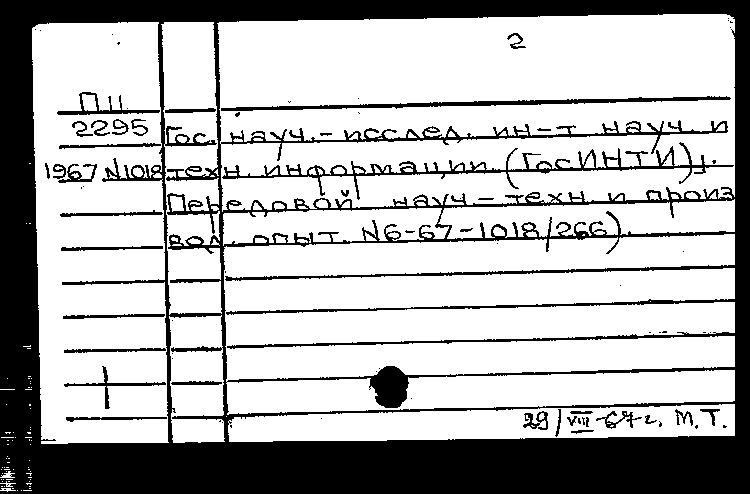 2
П 11
2295 Гос. науч.-исслед. ин-т науч. и
1967 N1018 техн. информации (ГосИНТИ).
Передовой науч-техн. и произ
вод. опыт. N6-67-1018/266).
29/VIII-67г. М.Т.